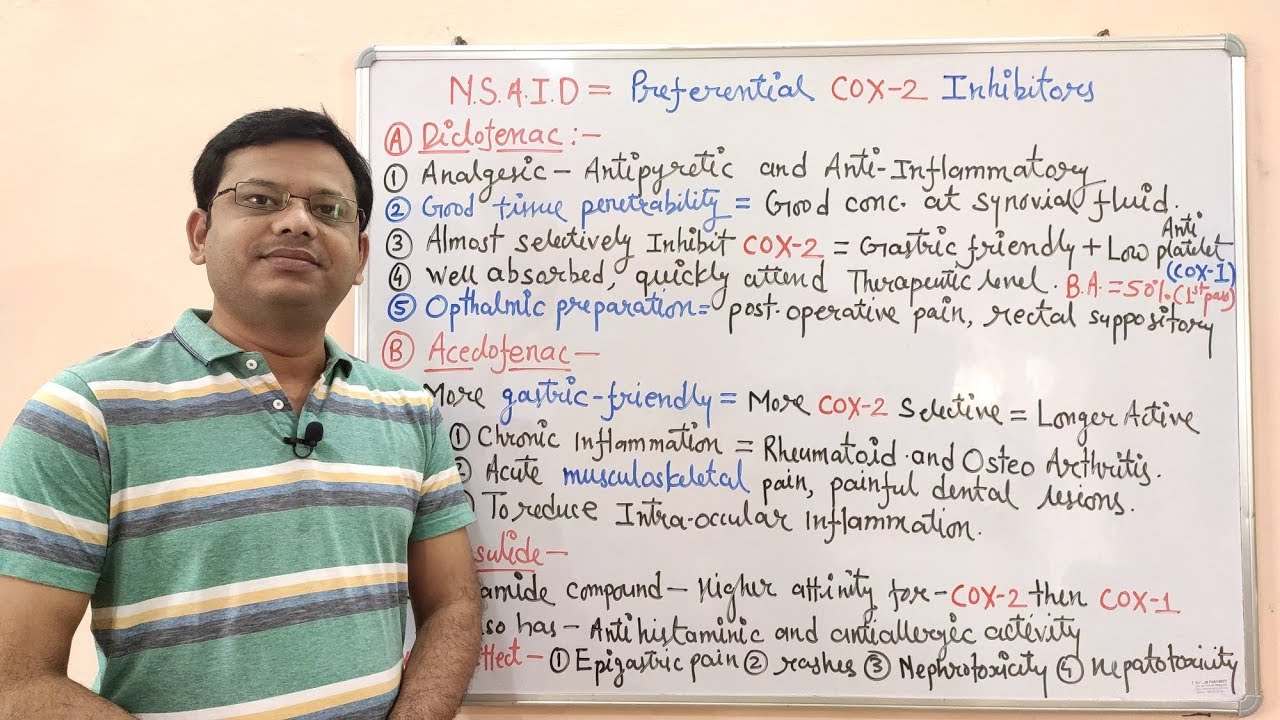 N.S.A.I.D = Preferential COX-2 Inhibitors
Ⓐ Diclofenac :-
① Analgesic - Antipyretic and Anti-Inflammatory
② Good tissue penetrability = Good conc. at synovial fluid.
③ Almost selectively Inhibit COX-2 = Gastric friendly + Low Anti platelet (COX-I)
④ Well absorbed, quickly attend Therapeutic level. B.A. = 50% (1st pass)
⑤ Opthalmic preparation = post-operative pain, rectal suppository
Ⓑ Aceclofenac -
More gastric-friendly = More COX-2 Selective = Longer Active
① Chronic Inflammation = Rheumatoid and Osteo Arthritis.
② Acute musculoskeletal pain, painful dental lesions.
To reduce Intra-occular Inflammation.
sulide -
amide compound - Higher affinity for - COX-2 then COX-1
so has - Antihistaminic and antiallergic activity
ffect - ① Epigastric pain ② rashes ③ Nephrotoxicity ④ Hepatotoxicity